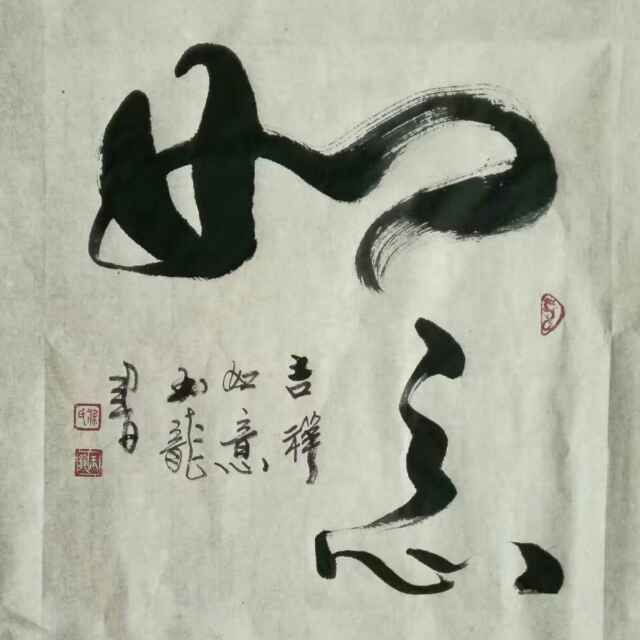 如意
吉祥
如意
玉龍
書